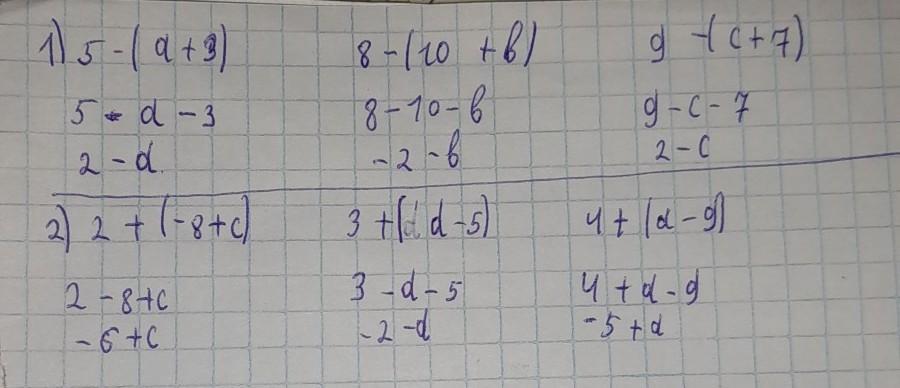 1) 5 - (a + 3) 8 - (10 + b) 9 - (c + 7)
5 - a - 3 8 - 10 - b 9 - c - 7
2 - a. -2 - b 2 - c
2) 2 + (-8 + c) 3 + (d - 5) 4 + (a - 9)
2 - 8 + c 3 - d - 5 4 + a - 9
-6 + c -2 - d -5 + a